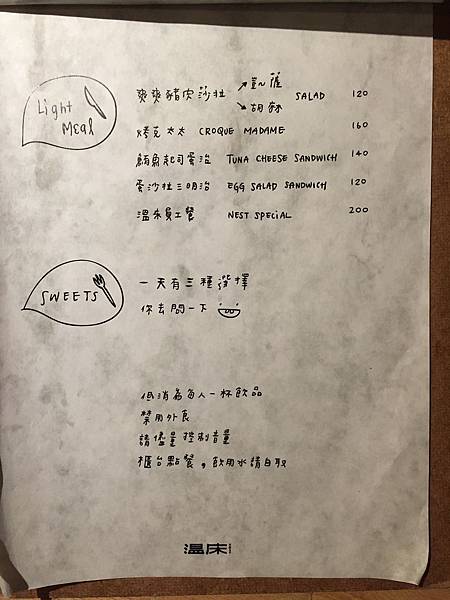 Light
Meal
爽爽豬肉沙拉 ↗凱薩 ↘胡麻 SALAD 120
烤克太太 CROQUE MADAME 160
鮪魚起司蛋治 TUNA CHEESE SANDWICH 140
蛋沙拉三明治 EGG SALAD SANDWICH 120
溫床員工餐 NEST SPECIAL 200
SWEETS
一天有三種選擇
你去問一下
低消為每人一杯飲品
禁用外食
請儘量控制音量
櫃台點餐，飲用水請自取
溫床